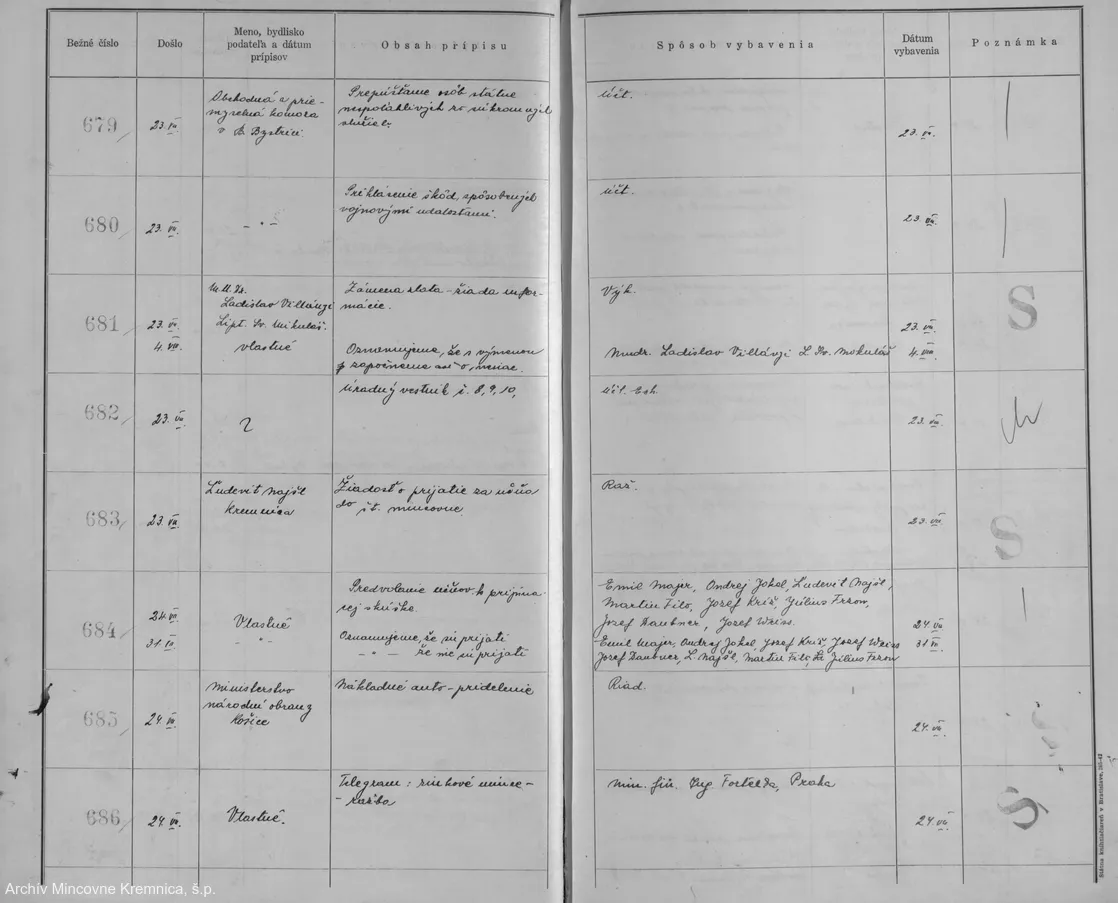 Bežné číslo
Došlo
Meno, bydlisko
podateľa a dátum
prípisov
Obsah prípisu
Spôsob vybavenia
Dátum
vybavenia
Poznámka
679
23. VII.
Obchodná a prie-
myselná komora
v B. Bystrici
Prepúšťanie osôb štátne
nespoľahlivých zo súkromných
služieb.
Účt.
23. VII.
680
23. VII.
- " -
Prihlásenie škôd, spôsobených
vojnovými udalosťami.
Účt.
23. VII.
681
23. VII.
M.U.Dr.
Ladislav Villányi
Lipt. Sv. Mikuláš.
Zámena zlata - žiada infor-
mácie.
Výk.
23. VII.
S
4. VIII.
vlastné
Oznamujeme, že s výmenou
započneme
Mudr. Ladislav Villányi L. Sv. Mikuláš
4. VIII.
682
23. VII.
?
Úradný vestník č. 8, 9, 10,
Účt.
23. VII.
683
23. VII.
Ľudevít Najšl
Kremnica
Žiadosť o prijatie za učňa
do št. mincovne.
Raz.
23. VII.
S
684
24. VII.
Vlastné
Predvolanie učňov k prijíma-
cej skúške.
Emil Majer, Ondrej Jokel, Ľudevít Najšl,
Martin Filo, Jozef Kríž, Július Frzon,
Jozef Daubner, Jozef Weiss.
24. VII.
31. VII.
- " -
Oznamujeme, že sú prijatí
- " - že nie sú prijatí
Emil Majer, Ondrej Jokel, Jozef Kríž Jozef Weiss
Jozef Daubner, Ľ. Najšl, Martin Filo, Július Frzon
31. VII.
685
24. VII.
Ministerstvo
národní obrany
Košice
Nákladné auto - pridelenie
Riad.
24. VII.
686
24. VII.
Vlastné.
Telegram: zinkové mince -
- razba
Min. fin. Ing Praha
24. VII.
S
Štátna knihtlačiareň v Bratislave.
Archív Mincovne Kremnica, š.p.